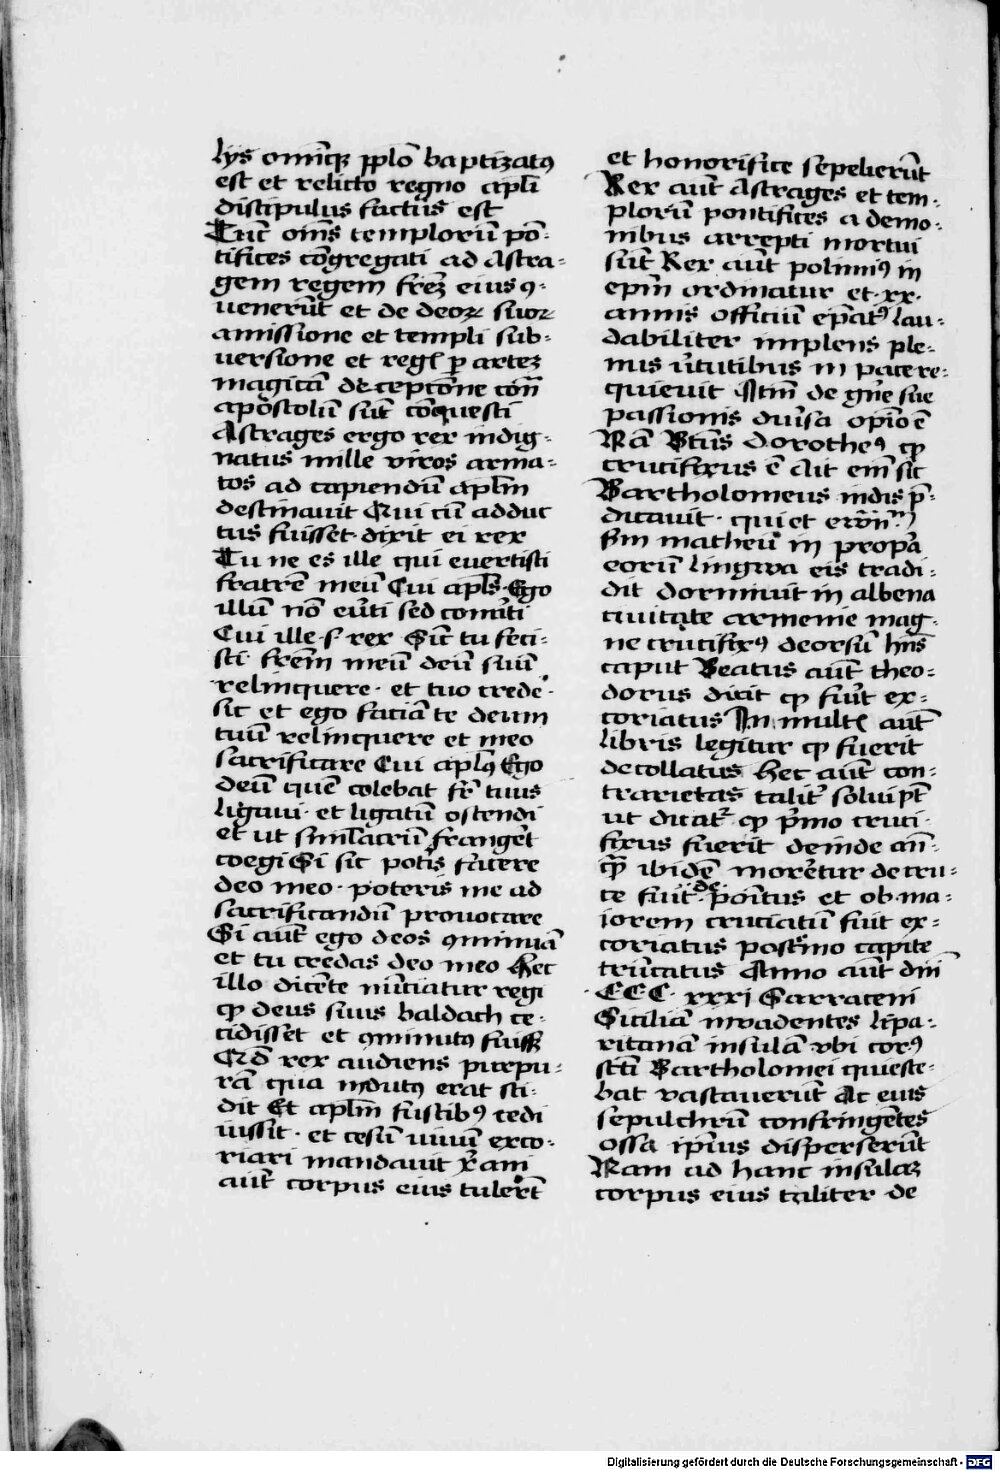 lijs omīqꝫ pplō baptizatꝰ
est et relicto regno apl̄i
discipulus factus est
Tūc om̄s templorū pō-
tifices cōgregati ad Astra-
gem regem fr̄eꝫ eius ꝯ-
uenerūt et de deoꝝ suoꝝ
amissione et templi sub-
uersione et reḡ ꝑ arteꝫ
magicā deceptōne cōn̄
apōstolū sūt cōquesti
Astrages ergo rex indig-
natus mille viros arma-
tos ad capiendū apl̄m
destinauit Qui cū adduc
tus fuisset dixit ei rex
Tu ne es ille qui euertisti
fratrē meū Cui apl̄s Ego
illū nō eu̓ti sed conu̓ti
Cui ille s rex Sic̄ tu feci-
sti fr̄em meū deū suū
relinquere et tuo crede-
sic et ego faciā te deum
tuū relinquere et meo
sacrificare Cui apl̄s Ego
deū quē colebat fr̄ tuus
ligaui et ligatū ostendi
et ut siml̄acrū frangēt
coegi Si sic potis̓ facere
deo meo poteris me ad
sacrificandū prouocare
Si aūt ego deos ꝯminuā
et tu credas deo meo Hec
illo dicēte nūciatur regi
ꝙ deus suus baldach ce-
cidisset et ꝯminutꝰ fuisꝫ
Qd̄ rex audiens purpu-
rā qua indutꝰ erat sci-
dit Et apl̄m fustibꝰ cedi
iussit et cesū uiuū exco-
riari mandauit xp̄iani
aūt corpus eius tulerūt
et honorifice sepelierūt
Rex aūt Astrages et tem-
plorū pontifices a demo-
nibus arrepti mortui
sūt Rex aūt polimiꝰ in
ep̄m ordinatur et xx
annis officiū ep̄atꝰ lau-
dabiliter implens ple-
nus u̓tutibus in pace re-
quieuit Itm̄ de gn̄e sue
passionis diu̓sa opīo ē
Nā Btūs dorotheꝰ ꝙ
crucifixus ē Ait em̄ sic
Bartholomeus indis p̄-
dicauit qui et
scd̄m matheū in propā
eorū lingwa eis tradi-
dit dormiuit in albena
ciuitate armenie mag-
ne crucifixꝰ deorsū hn̄s
caput Beatus aūt theo-
dorus dicit ꝙ fuit̓ ex-
coriatus In mult̄ aūt
libris legitur ꝙ fuerit
decollatus Hec aūt con-
trarietas talit̓ solui pt̄
ut dicat̓ ꝙ p̄mo cruci-
fixus fuerit deinde an̄-
ꝙ̄ ibidē morētur de cru-
ce fuit de ponitus et ob ma-
iorem cruciatū fuit ex-
coriatus postr̄mo capite
trūcatus Anno aūt dn̄i
CCC xxxj Sarraceni
Siciliā inuadentes lipa-
ritanā insulā vbi corꝰ
scī Bartholomei quiesce-
bat vastauerūt Ac eius
sepulchrū confringētes
ossa ip̄ius disperserūt
Nam ad hanc insulaꝫ
corpus eius taliter de
Digitalisierung gefördert durch die Deutsche Forschungsgemeinschaft - DFG